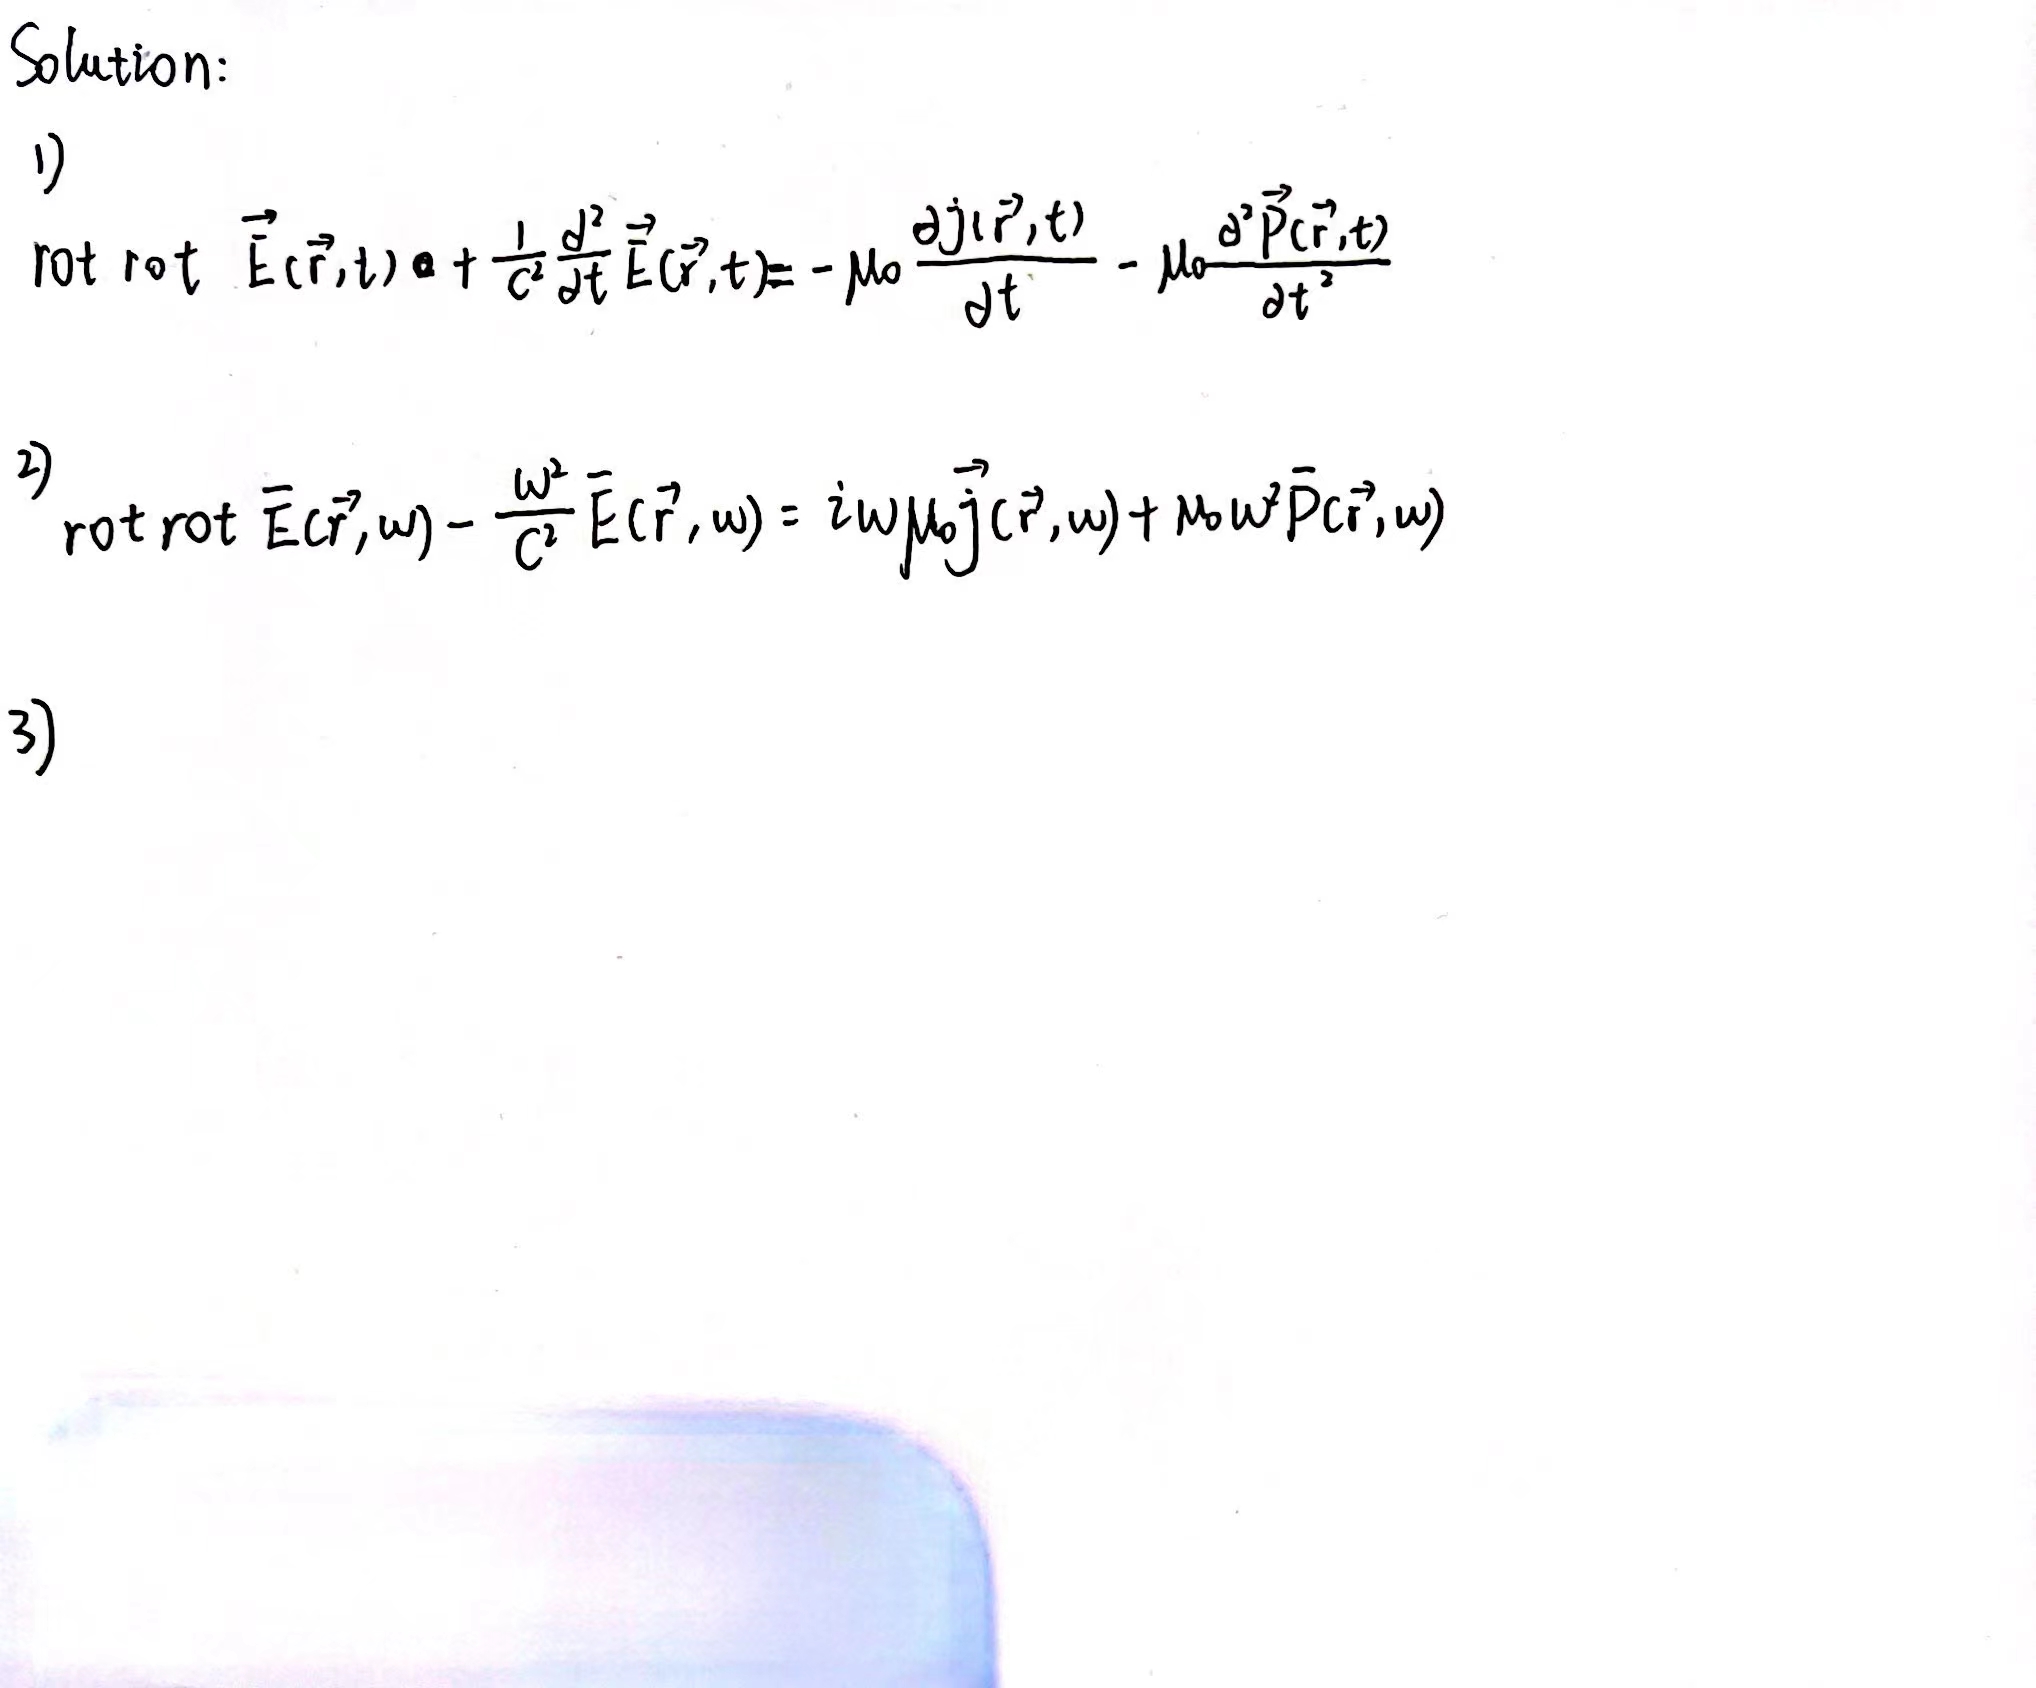 Solution:
1)
rot rot \vec{E}(\vec{r},t) + \frac{1}{c^2} \frac{∂^2}{∂t} \vec{E}(\vec{r},t) = -μ_0 \frac{∂j(\vec{r},t)}{∂t} - μ_0 \frac{∂^2\vec{P}(\vec{r},t)}{∂t^2}
2)
rot rot \bar{E}(\vec{r},ω) - \frac{ω^2}{c^2} \bar{E}(\vec{r},ω) = iωμ_0\vec{j}(\vec{r},ω) + μ_0ω^2\bar{P}(\vec{r},ω)
3)